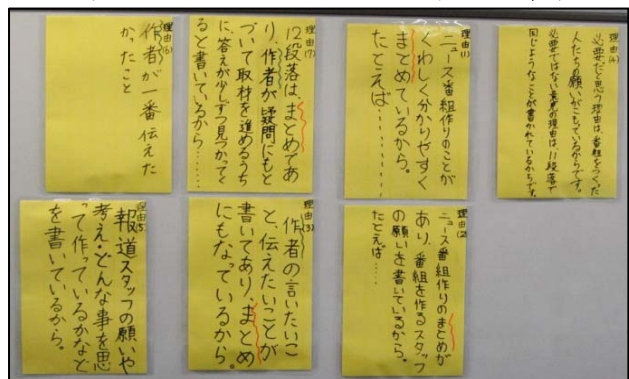 理由(4)
必要だと思う理由は、番組をつくった
人たちの願いがこもっているからです。
必要ではない意見の理由は、11段落で
同じようなことが書かれているからです。
理由(1)
ニュース番組作りのことが
くわしく分かりやすく
まとめているから。
たとえば…………
理由(7)
12段落は、まとめであ
り、作者が疑問にもと
づいて取材を進めるうち
に、答えが少しずつ見つかってく
ると書いているから……
理由(6)
作者が一番伝えた
かったこと
理由(2)
ニュース番組作りのまとめが
あり、番組を作るスタッフ
の願いを書いているから。
たとえば……
理由(3)
作者の言いたいこ
と、伝えたいことが
書いてあり、まとめ
にもなっているから。
理由(5)
報道スタッフの願いや
考え・どんな事を思
って作っているかなど
を書いているから。